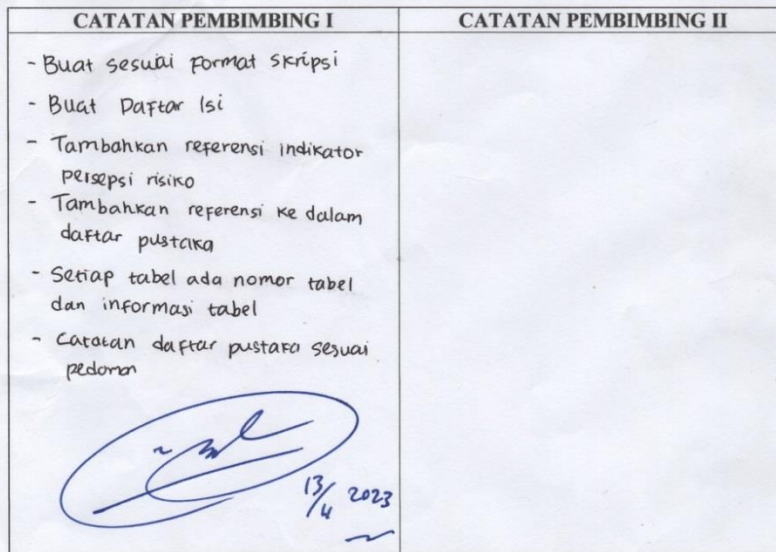 CATATAN PEMBIMBING I
CATATAN PEMBIMBING II
- Buat sesuai format skripsi
- Buat Daftar Isi
- Tambahkan referensi indikator
persepsi risiko
- Tambahkan referensi ke dalam
daftar pustaka
- Setiap tabel ada nomor tabel
dan informasi tabel
- Catatan daftar pustaka sesuai
pedoman
13/4 2023